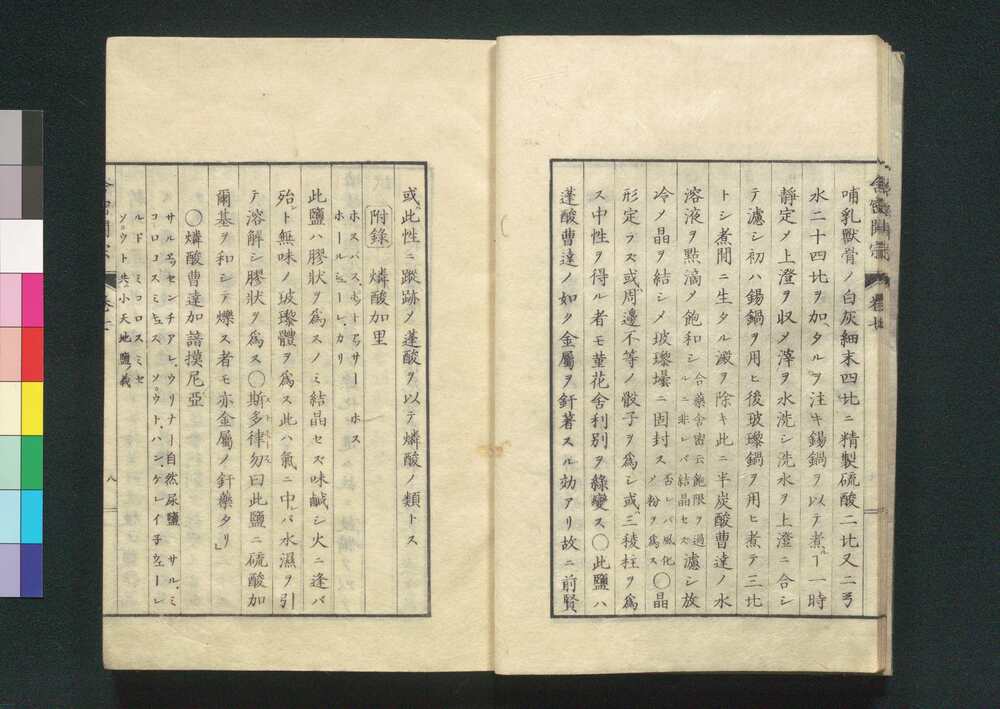 哺乳獸骨ノ白灰細末四比ニ精製硫酸二比又ニ
水二十四比ヲ加タルヲ注キ錫鍋ヲ以テ煮ルヿ一時
靜定メ上澄ヲ収メ滓ヲ水洗シ洗水ヲ上澄ニ合シ
テ濾シ初ハ錫鍋ヲ用ヒ後玻瓈鍋ヲ用ヒ煮テ三比
トシ煮間ニ生タル澱ヲ除キ此ニ半炭酸曹達ノ水
溶液ヲ點滴メ飽和シ
合藥舍密云飽限ヲ過
ルニ非レバ結晶セズ
濾シ放
冷メ晶ヲ結シメ玻瓈壜ニ固封ス
否レバ風化
メ粉ヲ為ス
〇晶
形定ラズ或周邊不等ノ骰子ヲ為シ或三稜柱ヲ為
ス中性ヲ得ル者モ菫花舍利別ヲ綠變ス〇此鹽ハ
蓬酸曹達ノ如ク金屬ヲ釬著スル効アリ故ニ前賢
舍密開宗
卷七
或此性ニ蹤跡メ蓬酸ヲ以テ燐酸ノ類トス
附錄 燐酸加里
ホスパス、ポットアサー ホス
ホールシューレ、カリ
此鹽ハ膠狀ヲ為スノミ結晶セズ味鹹シ火ニ逢バ
殆ト無味ノ玻瓈體ヲ為ス此ハ氣ニ中レバ水濕ヲ引
テ溶解シ膠狀ヲ為ス〇斯多律勿曰此鹽ニ硫酸加
爾基ヲ和シテ爍ス者モ亦金屬ノ釬藥タリ
〇燐酸曹達加諳摸尼亞
サルエッセンチアレ、ウリナー自然尿鹽 サル、ミ
コロコスミキュス ソウト、ハン、ゲレイ子ウェーレ
ルド ミコロコスミセ
ソウト共小天地鹽ノ義
八